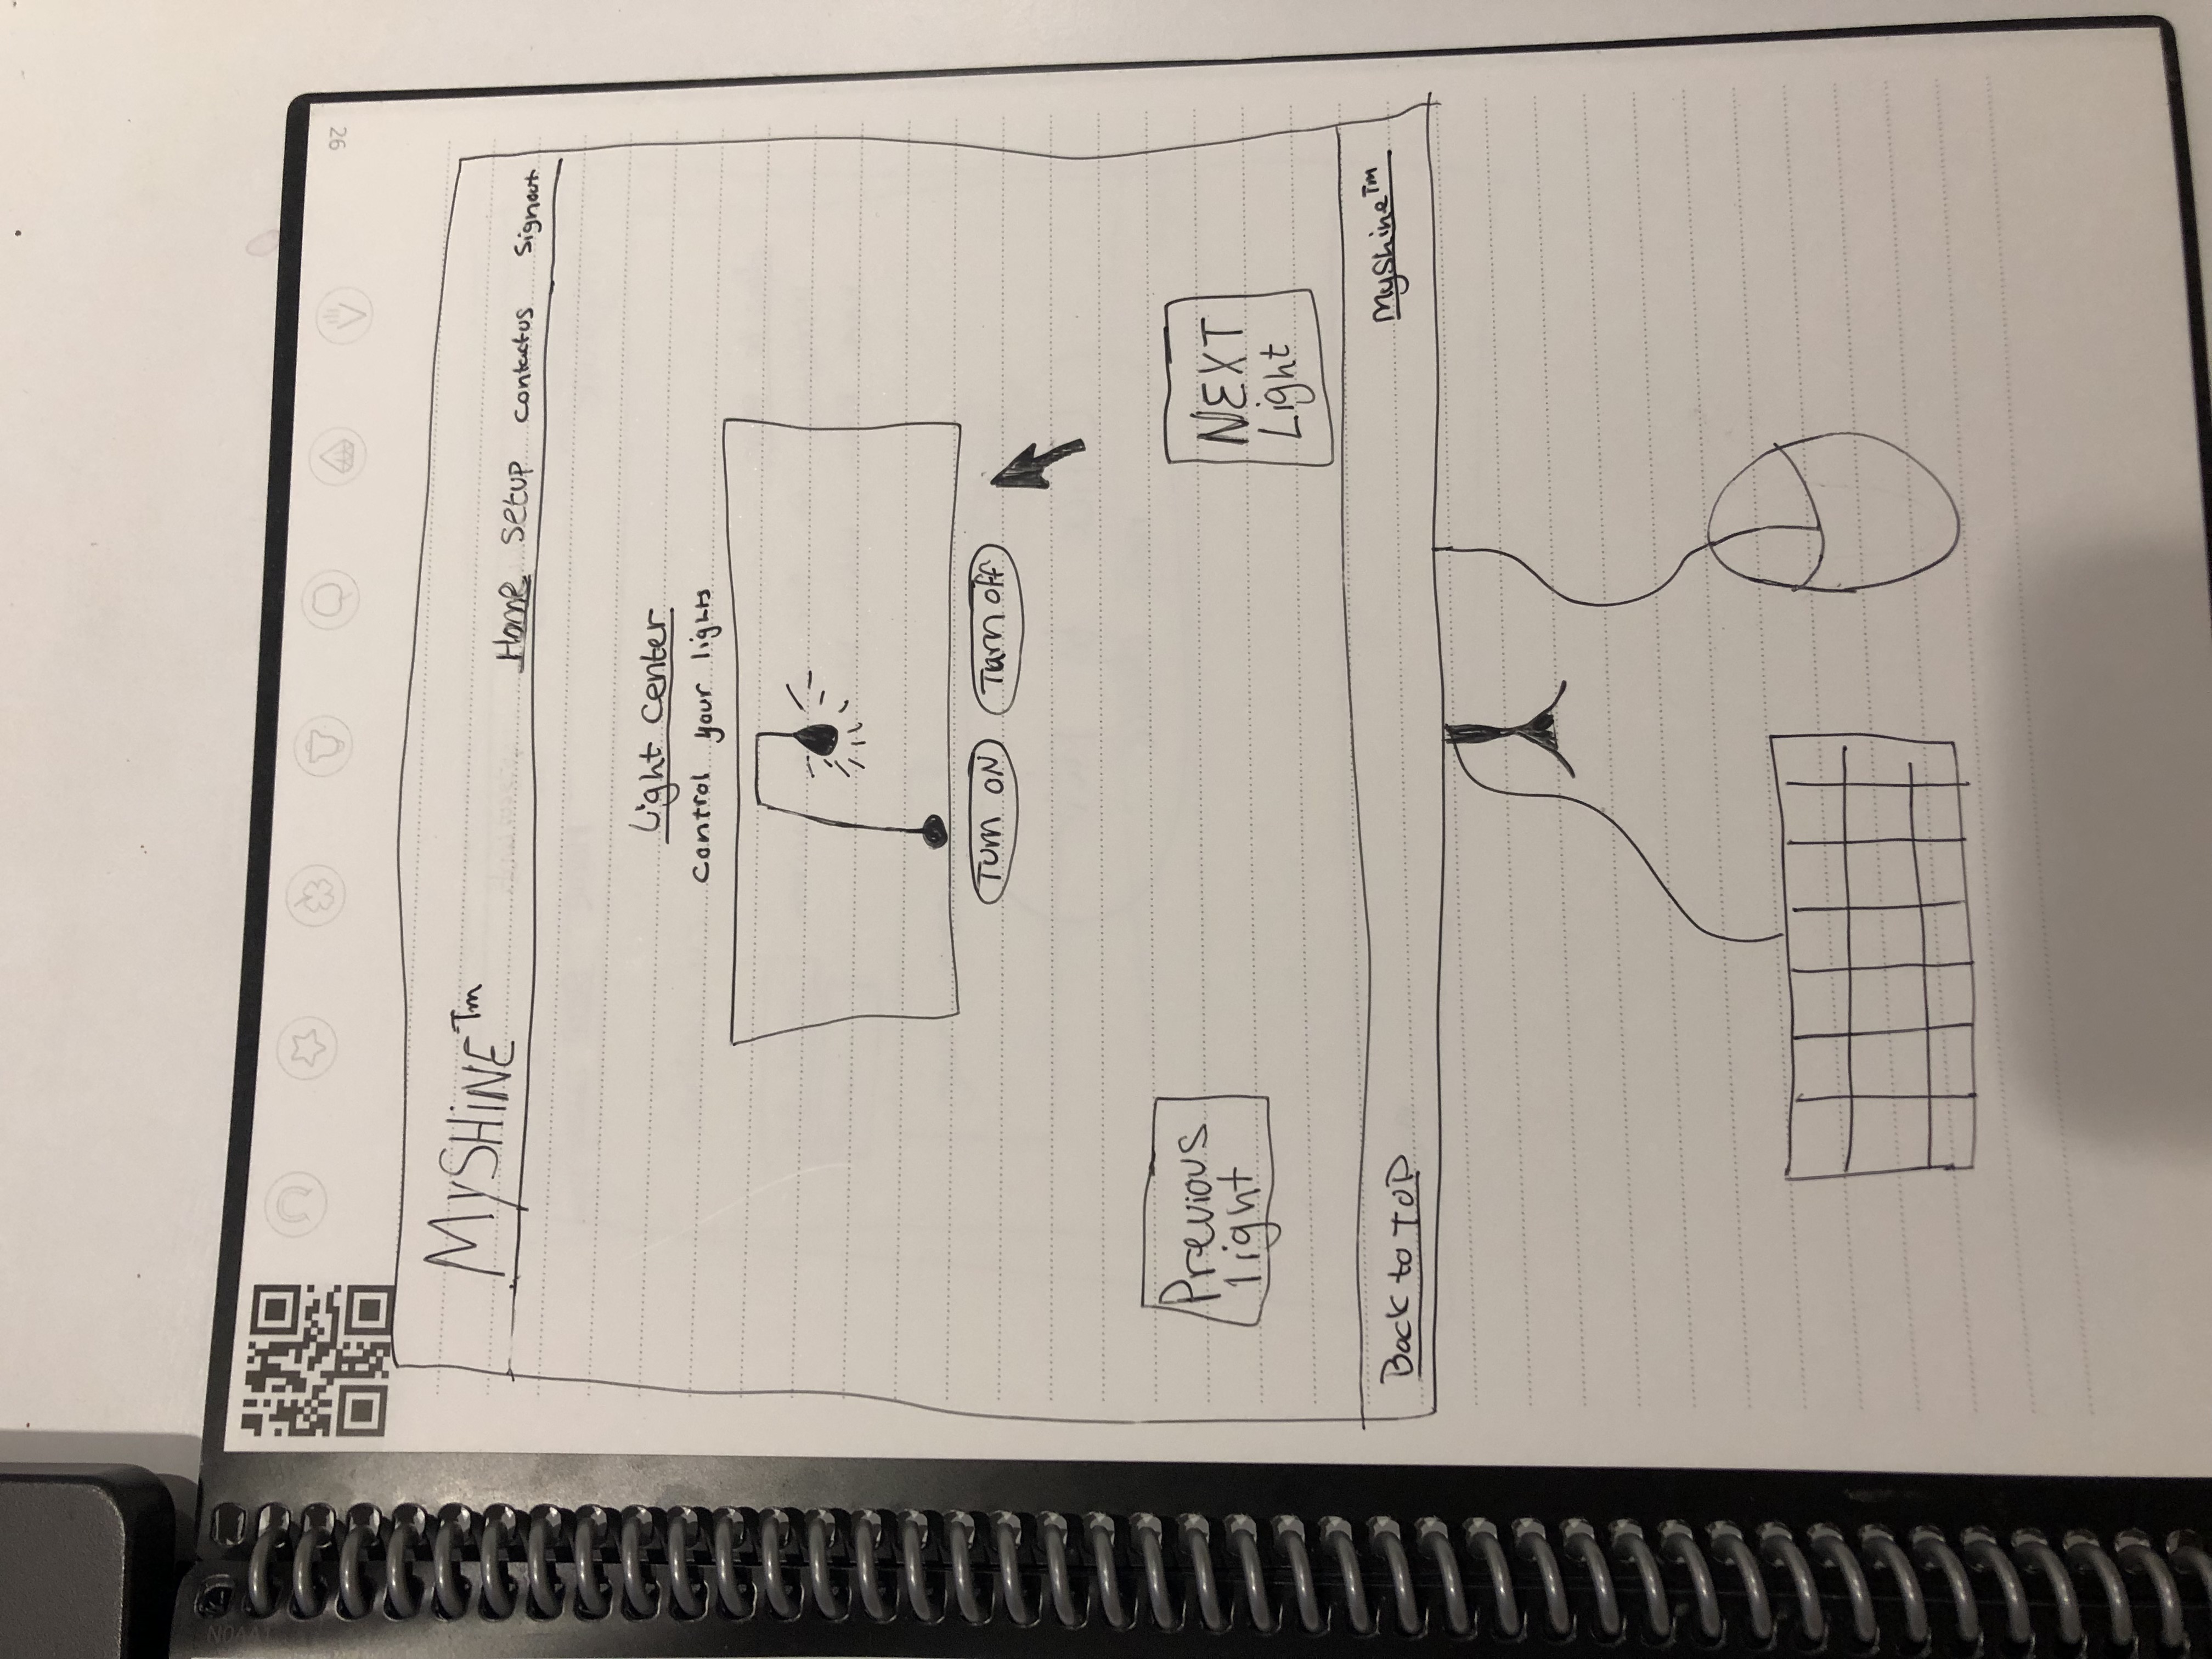 26
MYSHiNE™
Home Setup Contactus Signout
Light Center
Control your lights
Turn ON Turn off
Previous
light
NEXT
Light
Back to TOP
MyShine™